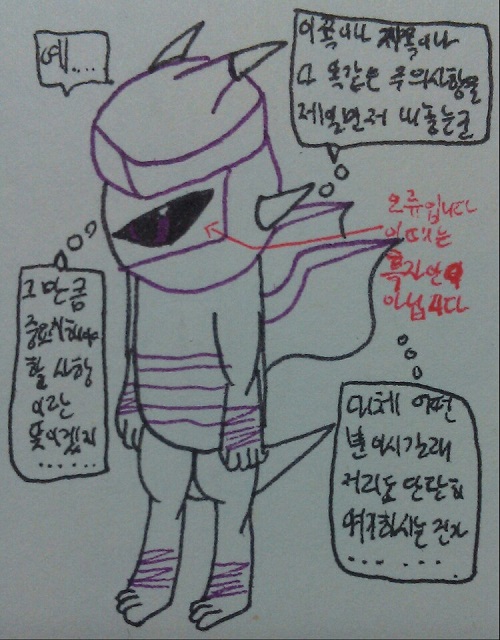 예....
이쪽이나 저쪽이나
다 똑같은 주의사항을
제일 먼저 내놓는군
오류입니다
이때는
흑자안
이 아닙니다
그만큼
중요시해야
할 사항
이란
뜻이겠지
......
대체 어떤
분이시길래
저리도 단단히
주의하시는 건지
......